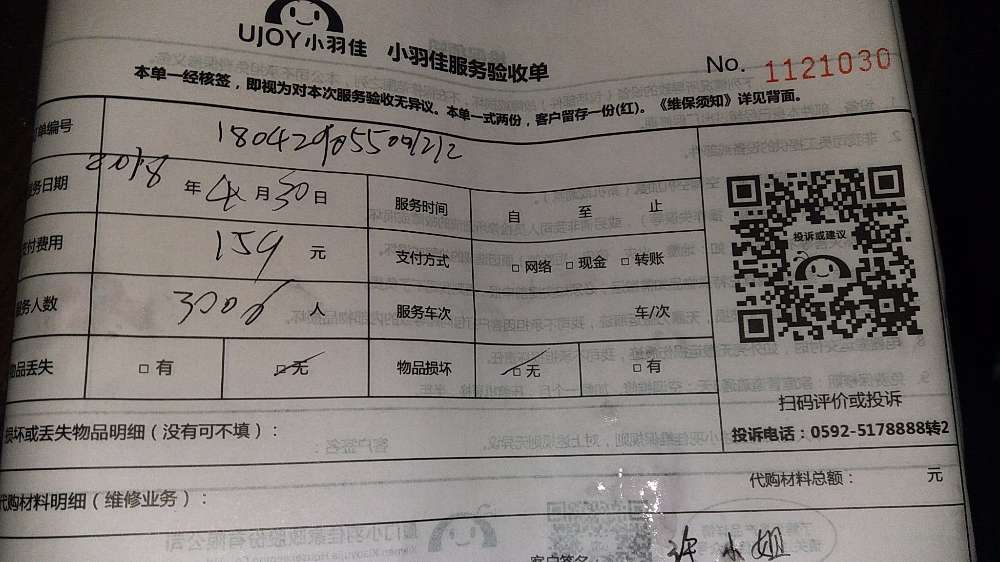 UJOY小羽佳 小羽佳服务验收单
No. 1121030
本单一经核签，即视为对本次服务验收无异议。本单一式两份，客户留存一份(红)。《维保须知》详见背面。
单编号
务日期 2018 年 4 月 30 日 服务时间 自 至 止
付费用 159 元 支付方式 □ 网络 □ 现金 □ 转账
投诉或建议
务人数 3006 人 服务车次 车/次
物品丢失 □ 有 □ 无 物品损坏 □ 无 □ 有
扫码评价或投诉
损坏或丢失物品明细（没有可不填）：
投诉电话：0592-5178888转2
代购材料明细（维修业务）：
代购材料总额： 元
客户签名： 许小姐